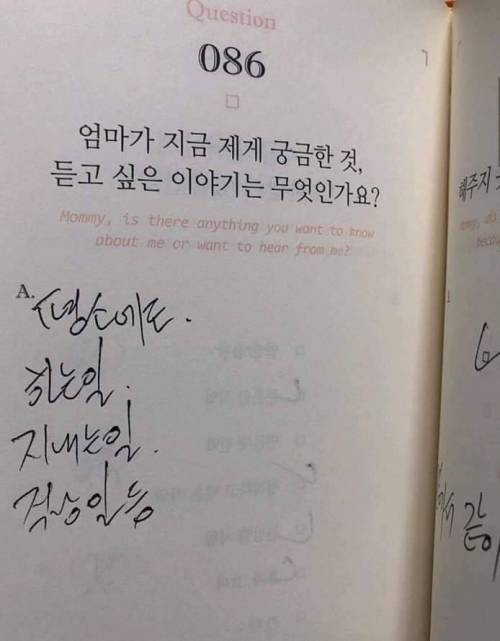 Question
086
엄마가 지금 제게 궁금한 것,
듣고 싶은 이야기는 무엇인가요?
Mommy, is there anything you want to know
about me or want to hear from me?
A.
하는일.
지내는일.
직장일 등
해주지